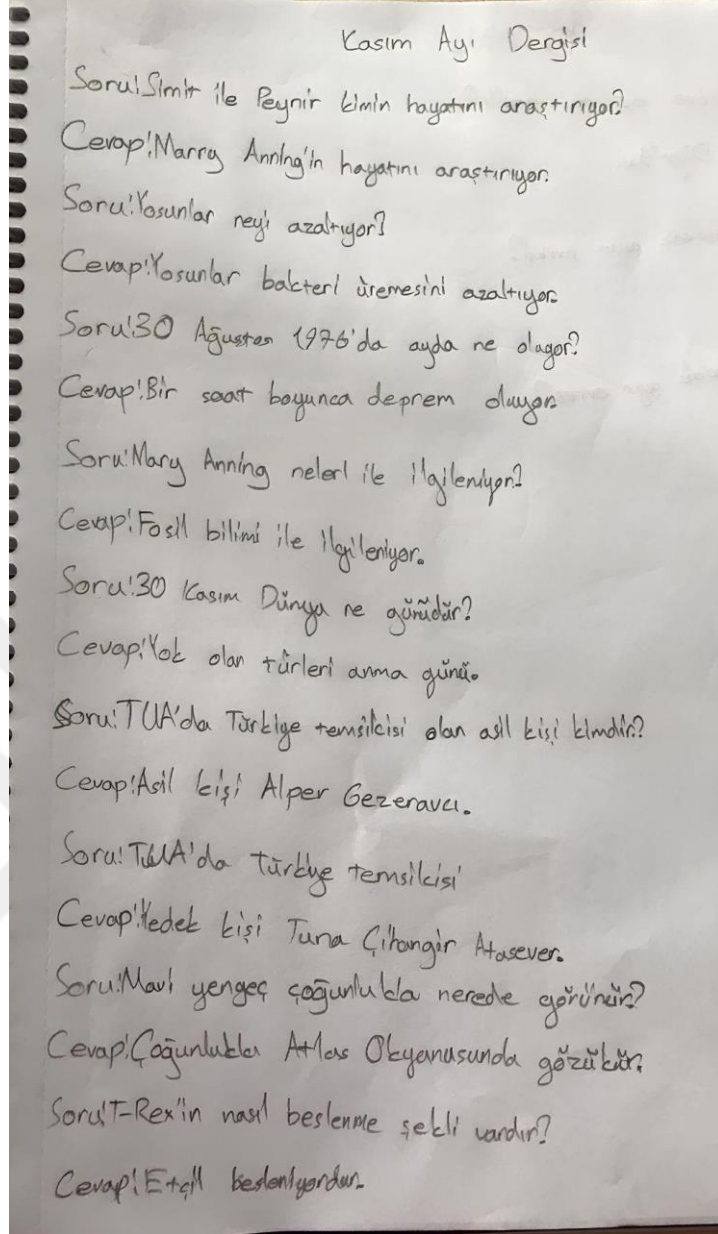 Kasım Ayı Dergisi
Soru:Simit ile Peynir kimin hayatını araştırıyor?
Cevap:Marry Anning'in hayatını araştırıyor.
Soru:Yosunlar neyi azaltıyor?
Cevap:Yosunlar bakteri üremesini azaltıyor.
Soru:30 Ağustos 1976'da ayda ne oluyor?
Cevap:Bir saat boyunca deprem oluyor.
Soru:Mary Anning neleri ile ilgileniyor?
Cevap:Fosil bilimi ile ilgileniyor.
Soru:30 Kasım Dünya ne günüdür?
Cevap:Yok olan türleri anma günü.
Soru:TUA'da Türkiye temsilcisi olan asil kişi kimdir?
Cevap:Asil kişi Alper Gezeravcı.
Soru:TUA'da Türkiye temsilcisi
Cevap:Yedek kişi Tuna Çihangir Atasever.
Soru:Mavi yengeç çoğunlukla nerede görünür?
Cevap:Çoğunlukla Atlas Okyanusunda gözükür.
Soru:T-Rex'in nasıl beslenme şekli vardır?
Cevap:Etçil besleniyordur.